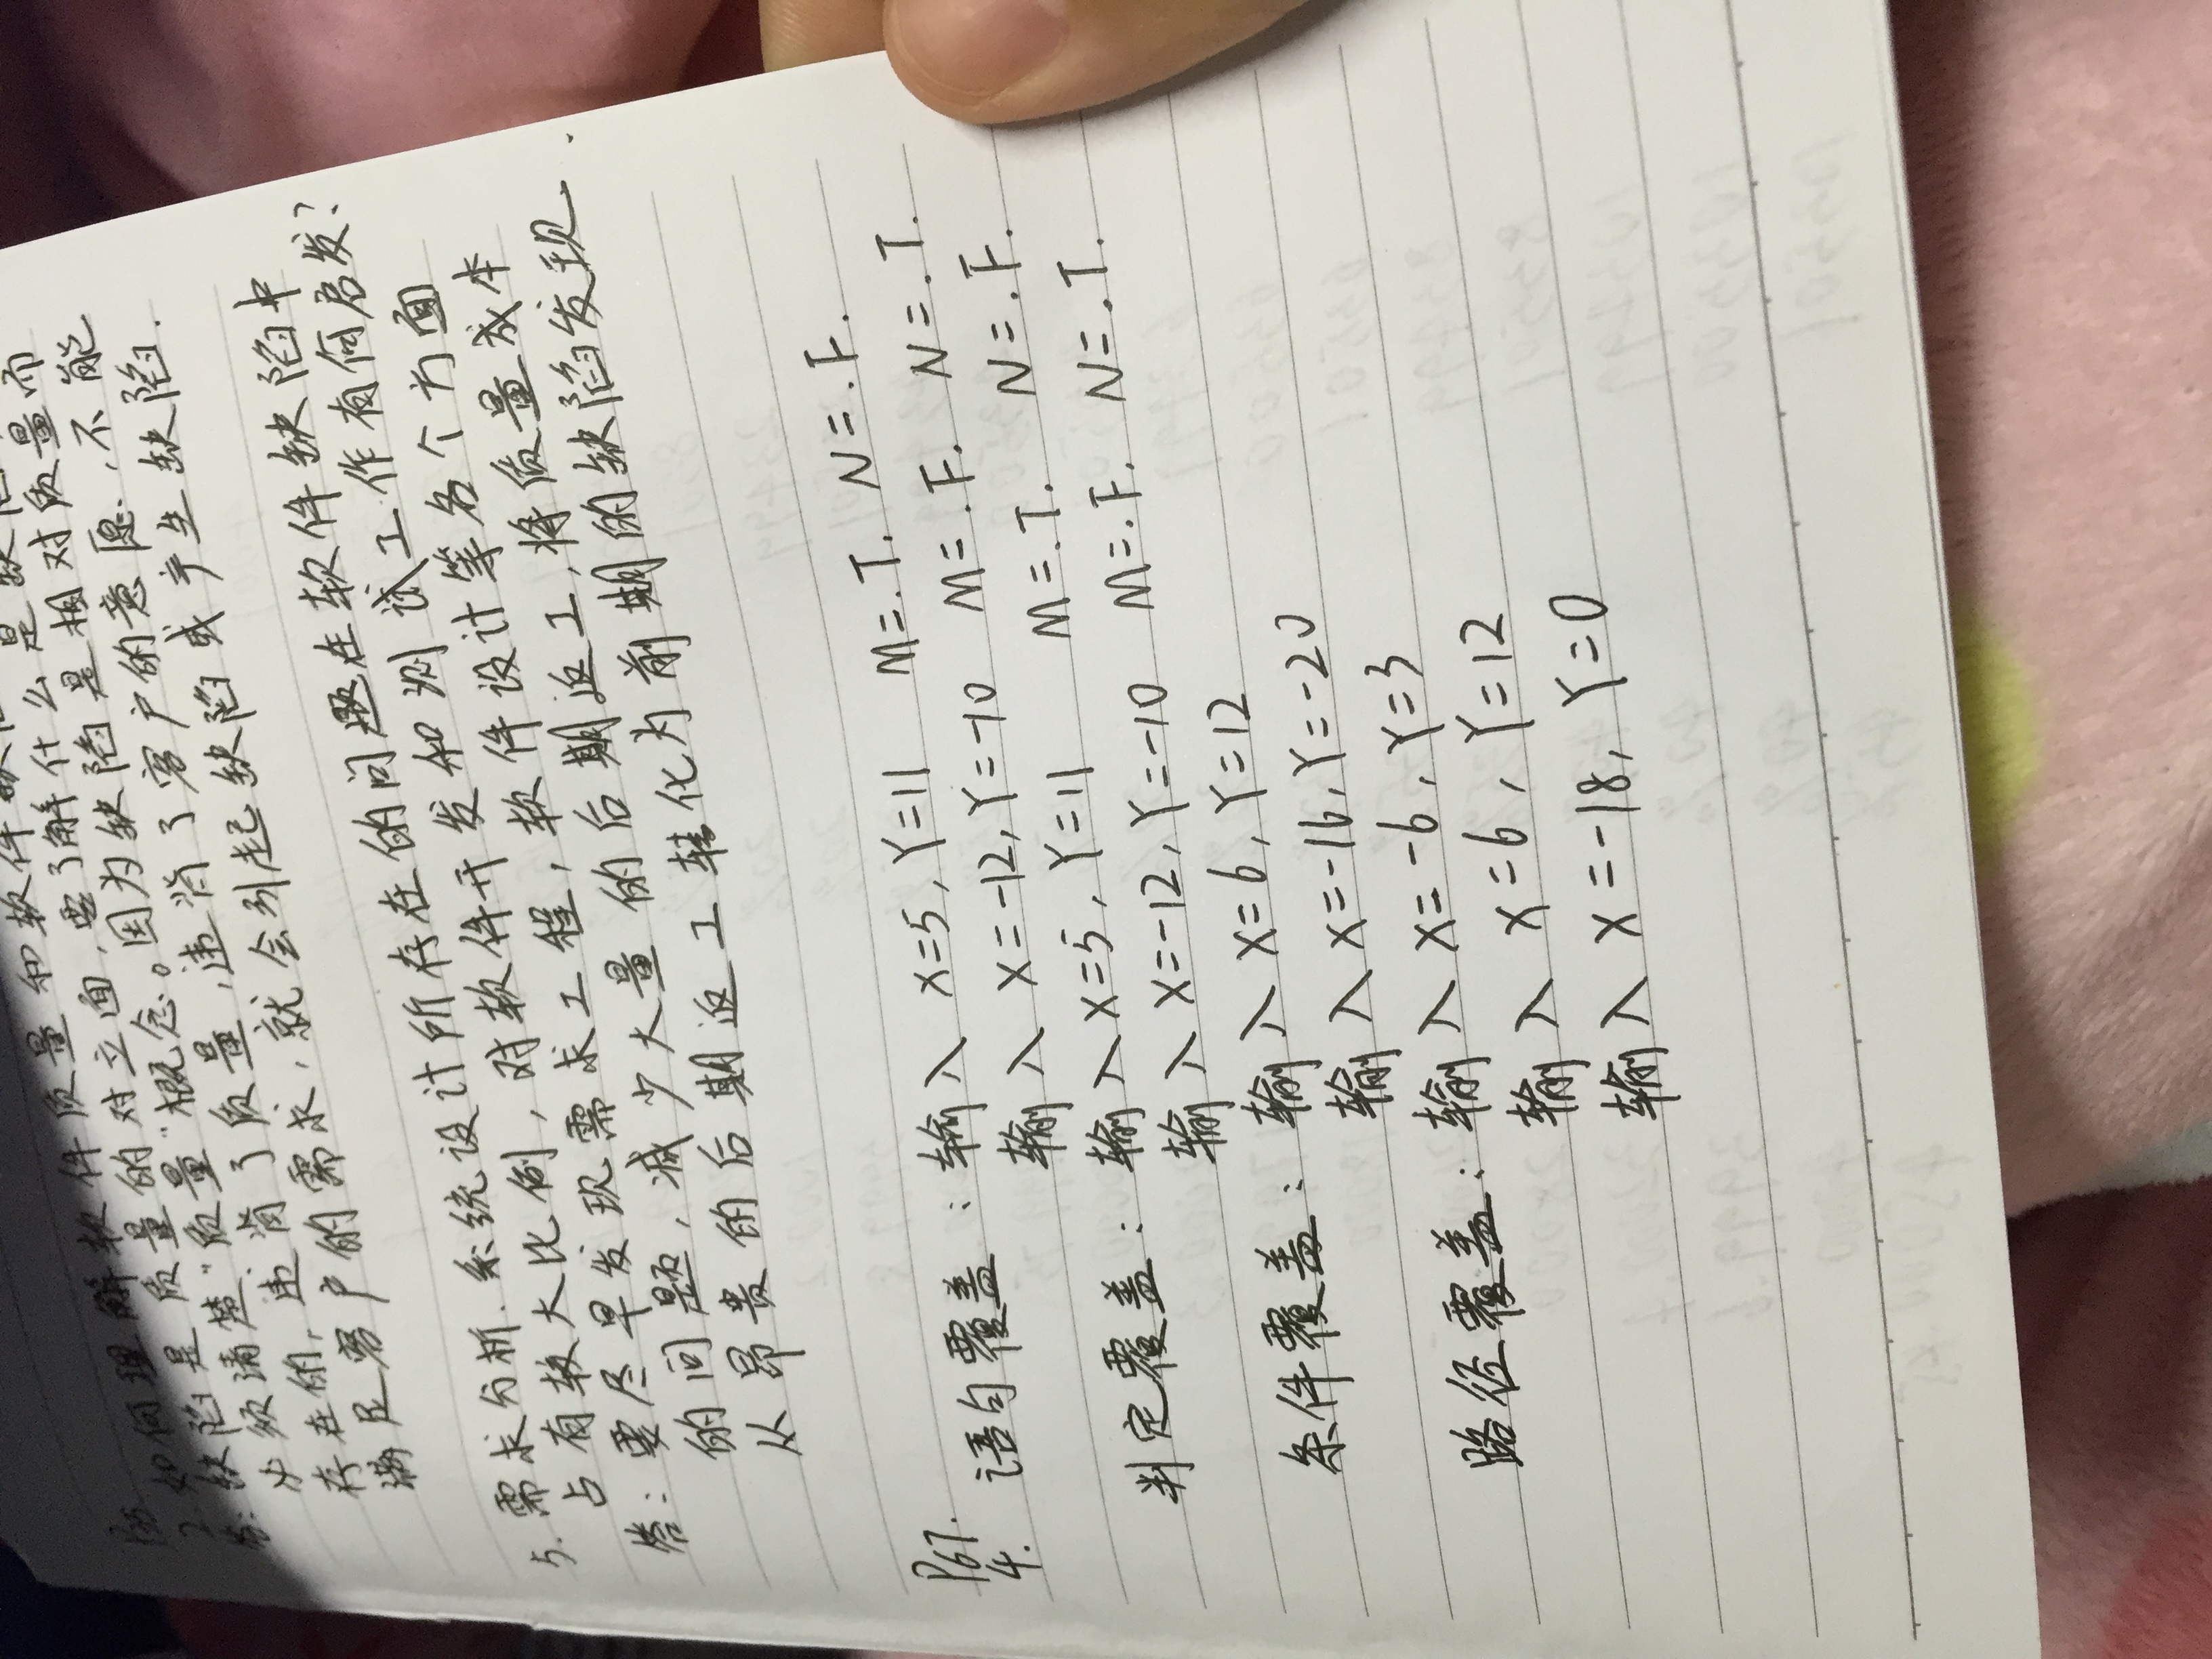 2. 如何理解软件质量和软件缺
答：缺陷是质量的对立面，要了解什么是缺陷
必须清楚“质量”概念。因为缺陷是相对质量而
存在的，违背了质量，违背了客户的意愿，不能
满足客户的需求，就会引起缺陷或产生缺陷.
5. 需求分析.系统设计所存在的问题在软件缺陷中
占有较大比例，对软件开发和测试工作有何启发？
答：要尽早发现需求工程，软件设计等各个方面
的问题，减少大量的后期返工，将质量成本
从昂贵的后期返工转化为前期的缺陷发现.
P67.
4. 语句覆盖：输入 X=5，Y=11 M=.T. N=.F.
输入 X=-12，Y=-10 M=.F. N=.T.
判定覆盖：输入X=5，Y=11 M=.T. N=.F.
输入 X=-12，Y=-10 M=.F. N=.T.
条件覆盖：输入 X=6，Y=12
输入 X=-16，Y=-20
路径覆盖：输入 X=-6，Y=3
输入 X=6，Y=12
输入 X=-18，Y=0